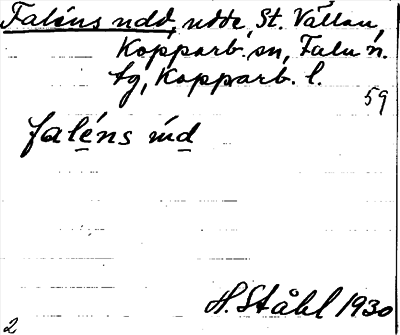 Faléns udd, udde, St. Vällan,
Kopparb. sn, Falu n.
tg, Kopparb. l.
59
faléns úd
H. Ståhl 1930
2